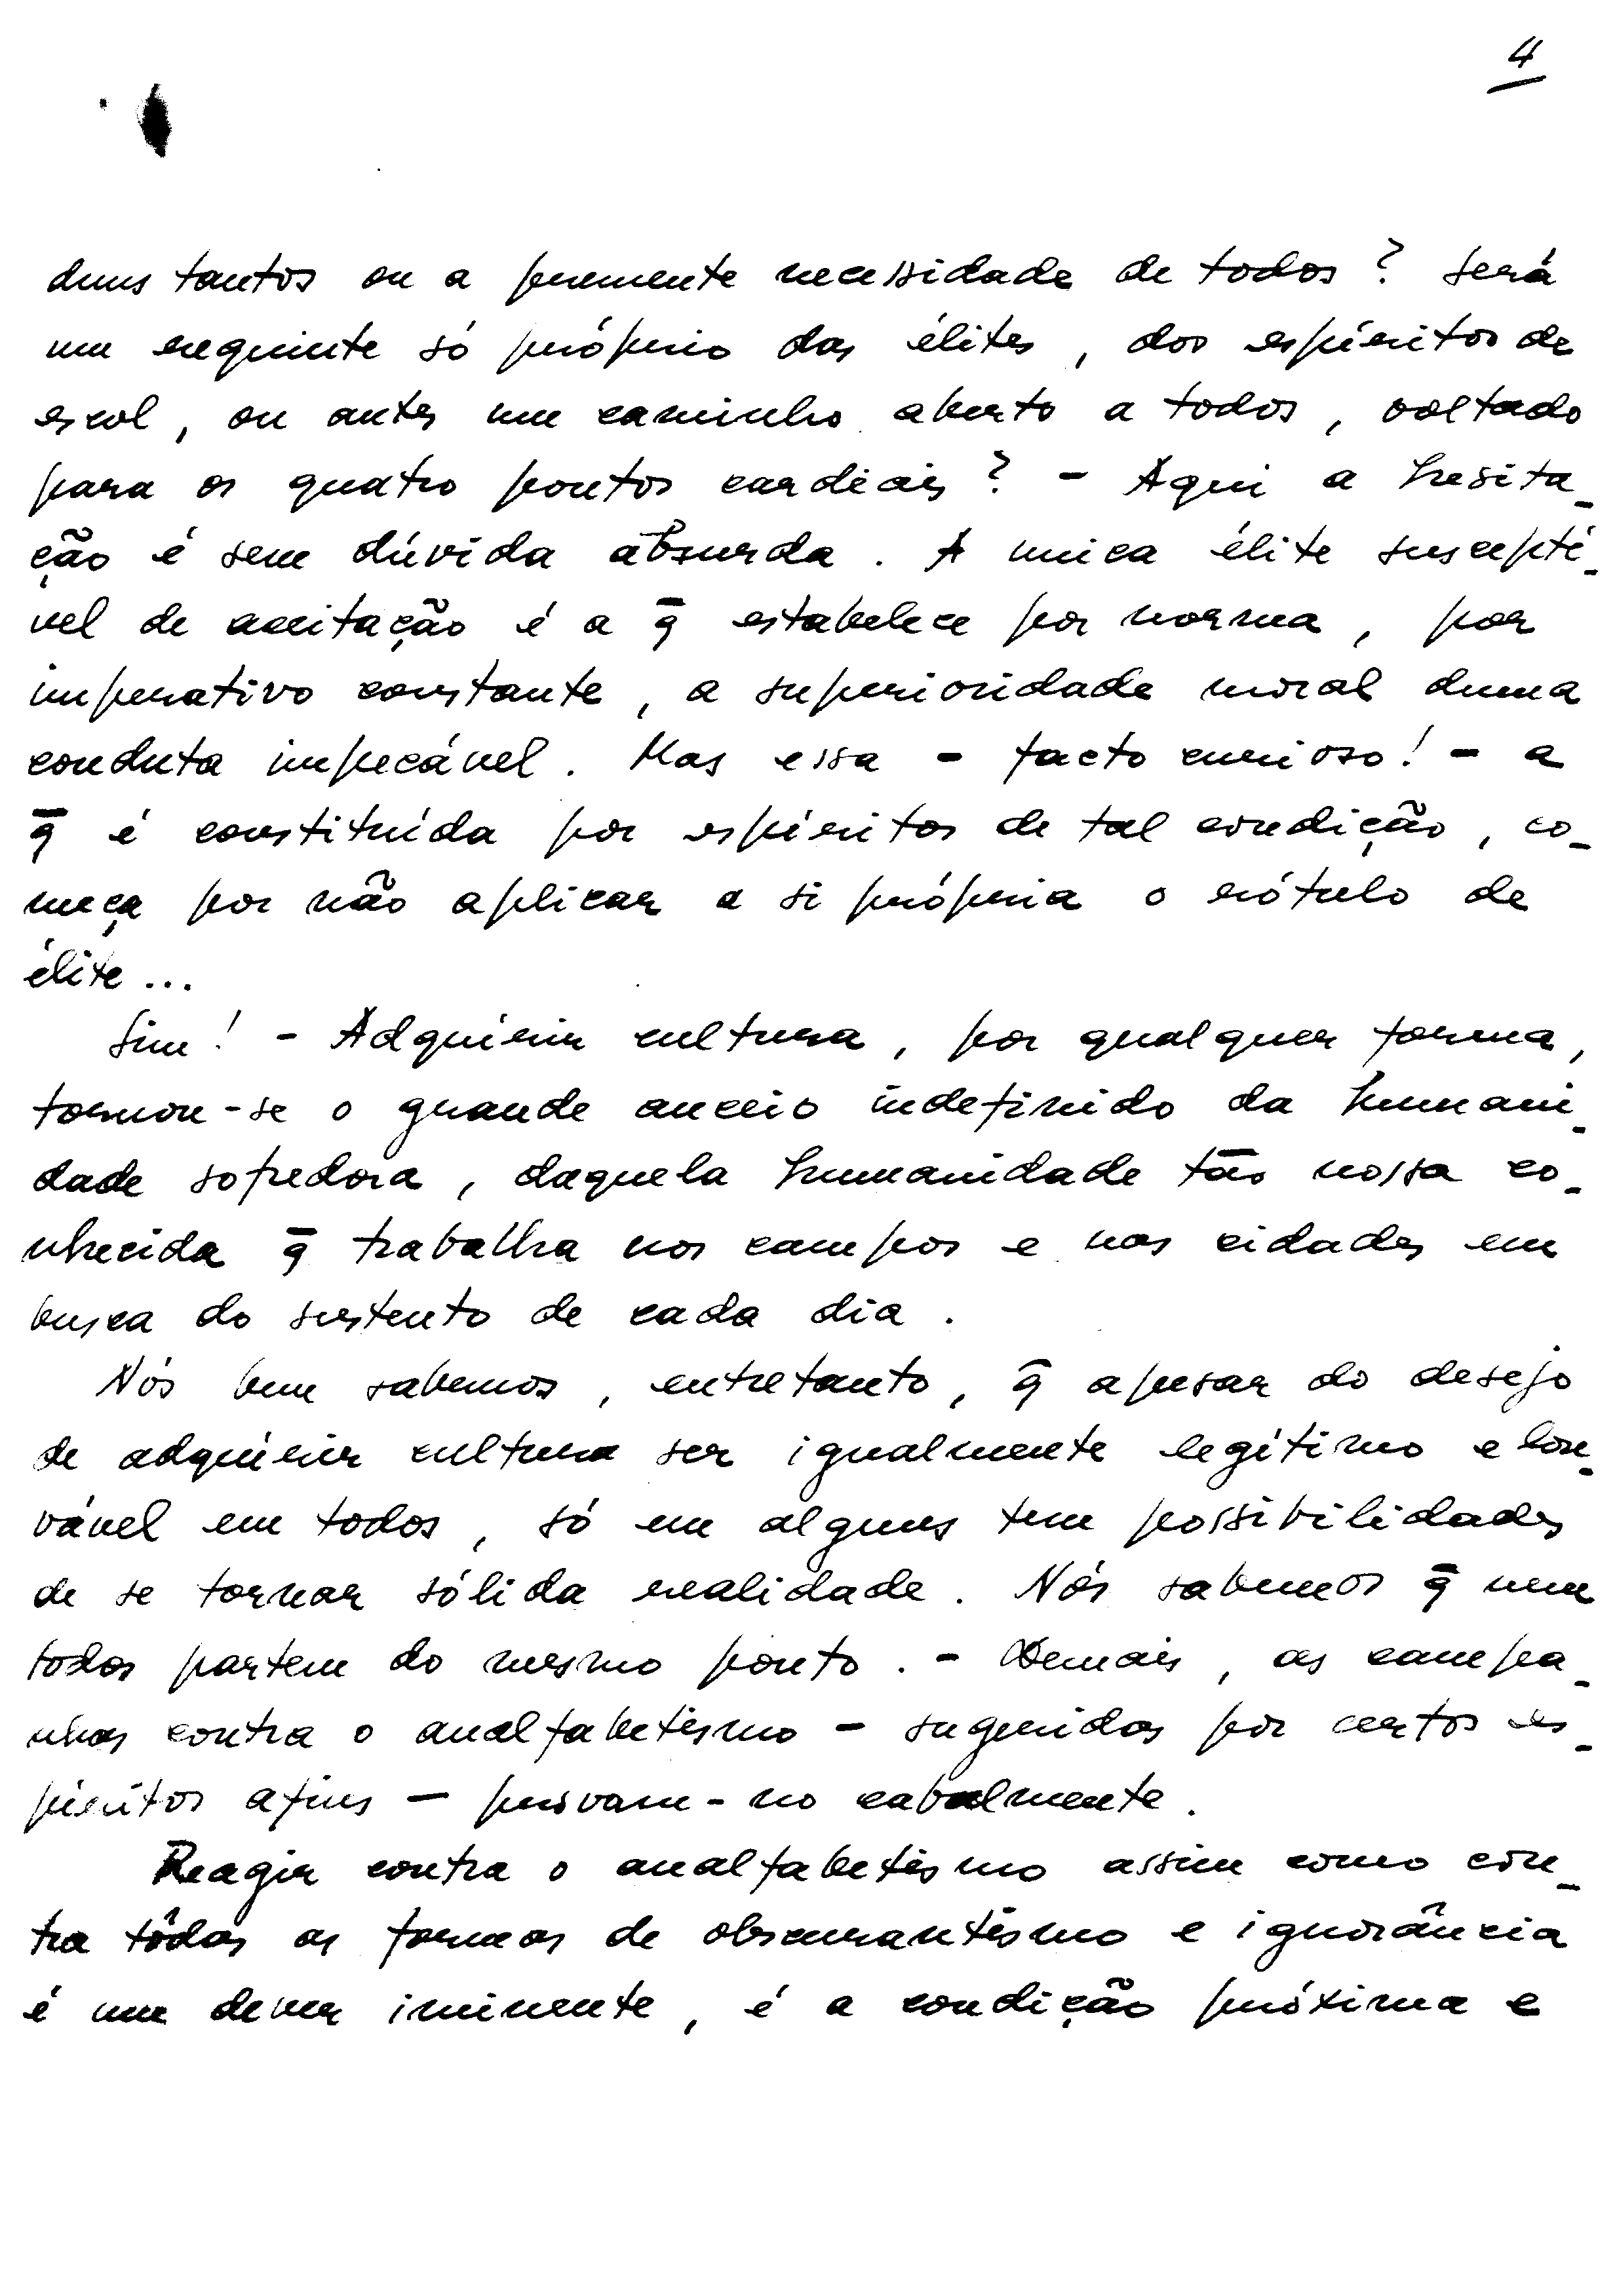 4
duns tantos ou a premente necessidade de todos? Será
um requinte só próprio das élites, dos espíritos de
escol, ou antes um caminho aberto a todos, voltado
para os quatro pontos cardiais? - Aqui a hesita-
ção é sem dúvida absurda. A unica élite susceptí-
vel de aceitação é a q̄ estabelece por norma, por
imperativo constante, a superioridade moral duma
conduta impecável. Mas essa - facto curioso! - a
q̄ é constituída por espíritos de tal condição, co-
meça por não aplicar a si própria o rótulo de
élite...
Sim! - Adquirir cultura, por qualquer forma,
tornou-se o grande anceio indefinido da humani-
dade sofredora, daquela humanidade tão nossa co-
nhecida q̄ trabalha nos campos e nas cidades em
busca do sustento de cada dia.
Nós bem sabemos, entretanto, q̄ apesar do desejo
de adquirir cultura ser igualmente legítimo e lou-
vável em todos, só em alguns tem possibilidades
de se tornar sólida realidade. Nós sabemos q̄ nem
todos partem do mesmo ponto. - Demais, as campa-
nhas contra o analfabetismo - sugeridas por certos es-
píritos afins - provam-no cabalmente.
Reagir contra o analfabetismo assim como con-
tra tôdas as formas de obscurantismo e ignorância
é um dever iminente, é a condição próxima e